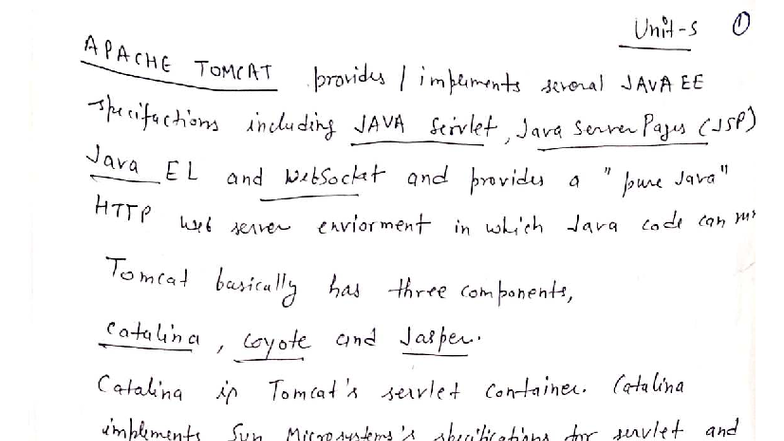 Unit-5 ①
APACHE TOMCAT provides / implements several JAVA EE
specifactions including JAVA Servlet, Java Server Pages (JSP)
Java EL and WebSocket and provides a "pure Java"
HTTP web server enviorment in which Java code can run
Tomcat basically has three components,
Catalina, Coyote and Jasper.
Catalina is Tomcat's servlet container. Catalina
implements Sun Microsystems's specifications for servlet and